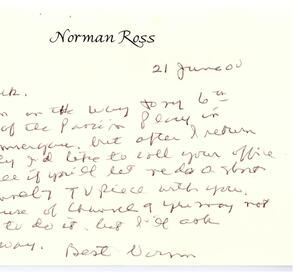 Norman Ross
21 June 00
ck.
on the way to my 6th
of the Passion Play in
but after I return
I'd like to call your office
see if you'll let me do a short
TV piece with you.
you may not
to do it, but I'll ask
way. Best Norm